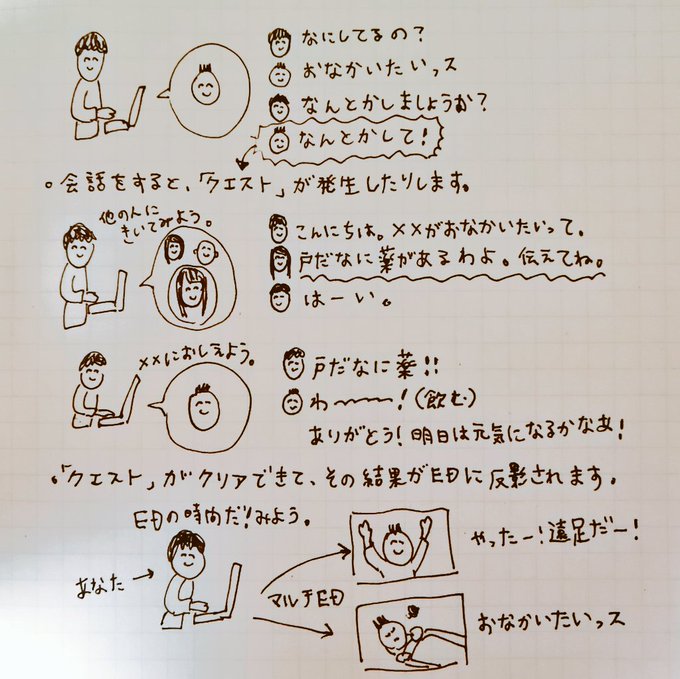 なにしてるの？
おなかいたいっス
なんとかしましょうか？
なんとかして！
。会話をすると、「クエスト」が発生したりします。
他の人に
きいてみよう。
こんにちは。××がおなかいたいって。
戸だなに薬があるわよ。伝えてね。
はーい。
××におしえよう。
戸だなに薬!!
わ〜〜〜！(飲む)
ありがとう！明日は元気になるかなあ！
。「クエスト」がクリアできて、その結果がEDに反影されます。
EDの時間だ！みよう。
あなた→
マルチED
やったー！遠足だー！
おなかいたいっス